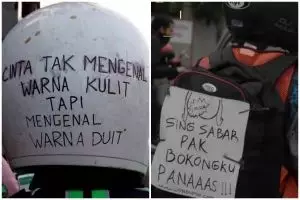 CINTA TAK MENGENAL
WARNA KULIT
TAPI
MENGENAL
WARNA DUIT"
SING SABAR
PAK
BOKONGKU
PANAAAS!!!